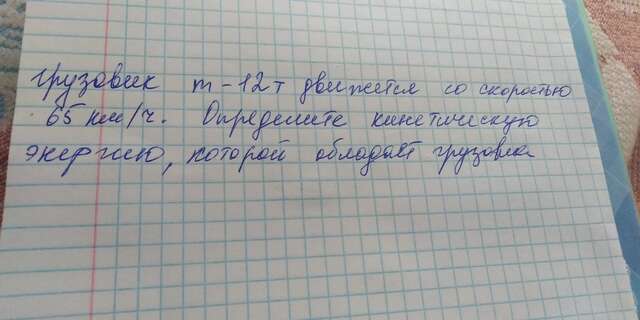 грузовик m - 12 т движется со скоростью
65 км/ч. Определите кинетическую
энергию, которой обладает грузовик